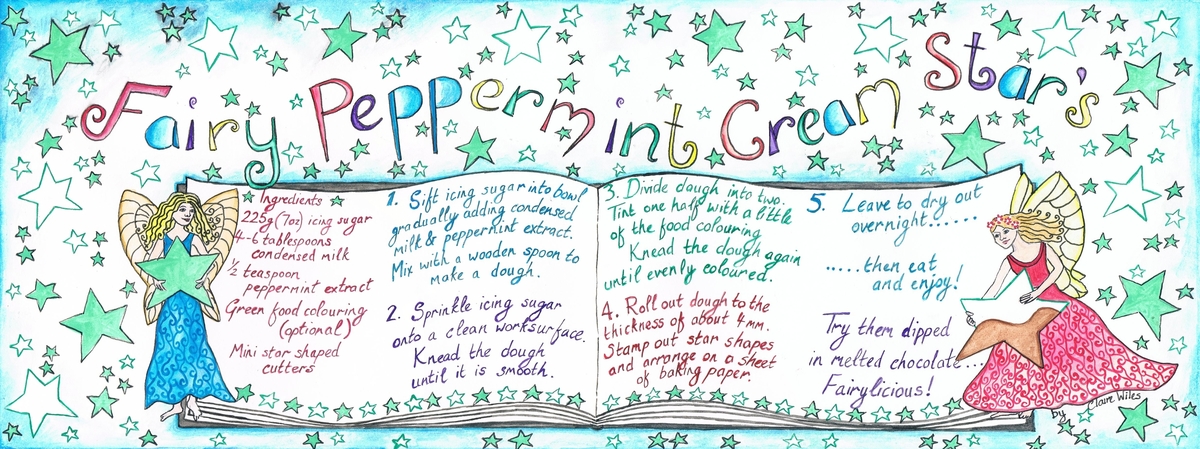 Fairy Peppermint Cream Star's
Ingredients
225g (7oz) icing sugar
4-6 tablespoons
condensed milk
½ teaspoon
peppermint extract
Green food colouring
(optional)
Mini star shaped
cutters
1. Sift icing sugar into bowl
gradually adding condensed
milk & peppermint extract.
Mix with a wooden spoon to
make a dough.
2. Sprinkle icing sugar
onto a clean worksurface.
Knead the dough
until it is smooth.
3. Divide dough into two.
Tint one half with a little
of the food colouring
Knead the dough again
until evenly coloured.
4. Roll out dough to the
thickness of about 4mm.
Stamp out star shapes
and arrange on a sheet
of baking paper.
5. Leave to dry out
overnight.....
.....then eat
and enjoy!
Try them dipped
in melted chocolate...
Fairylicious!
by Claire Wiles